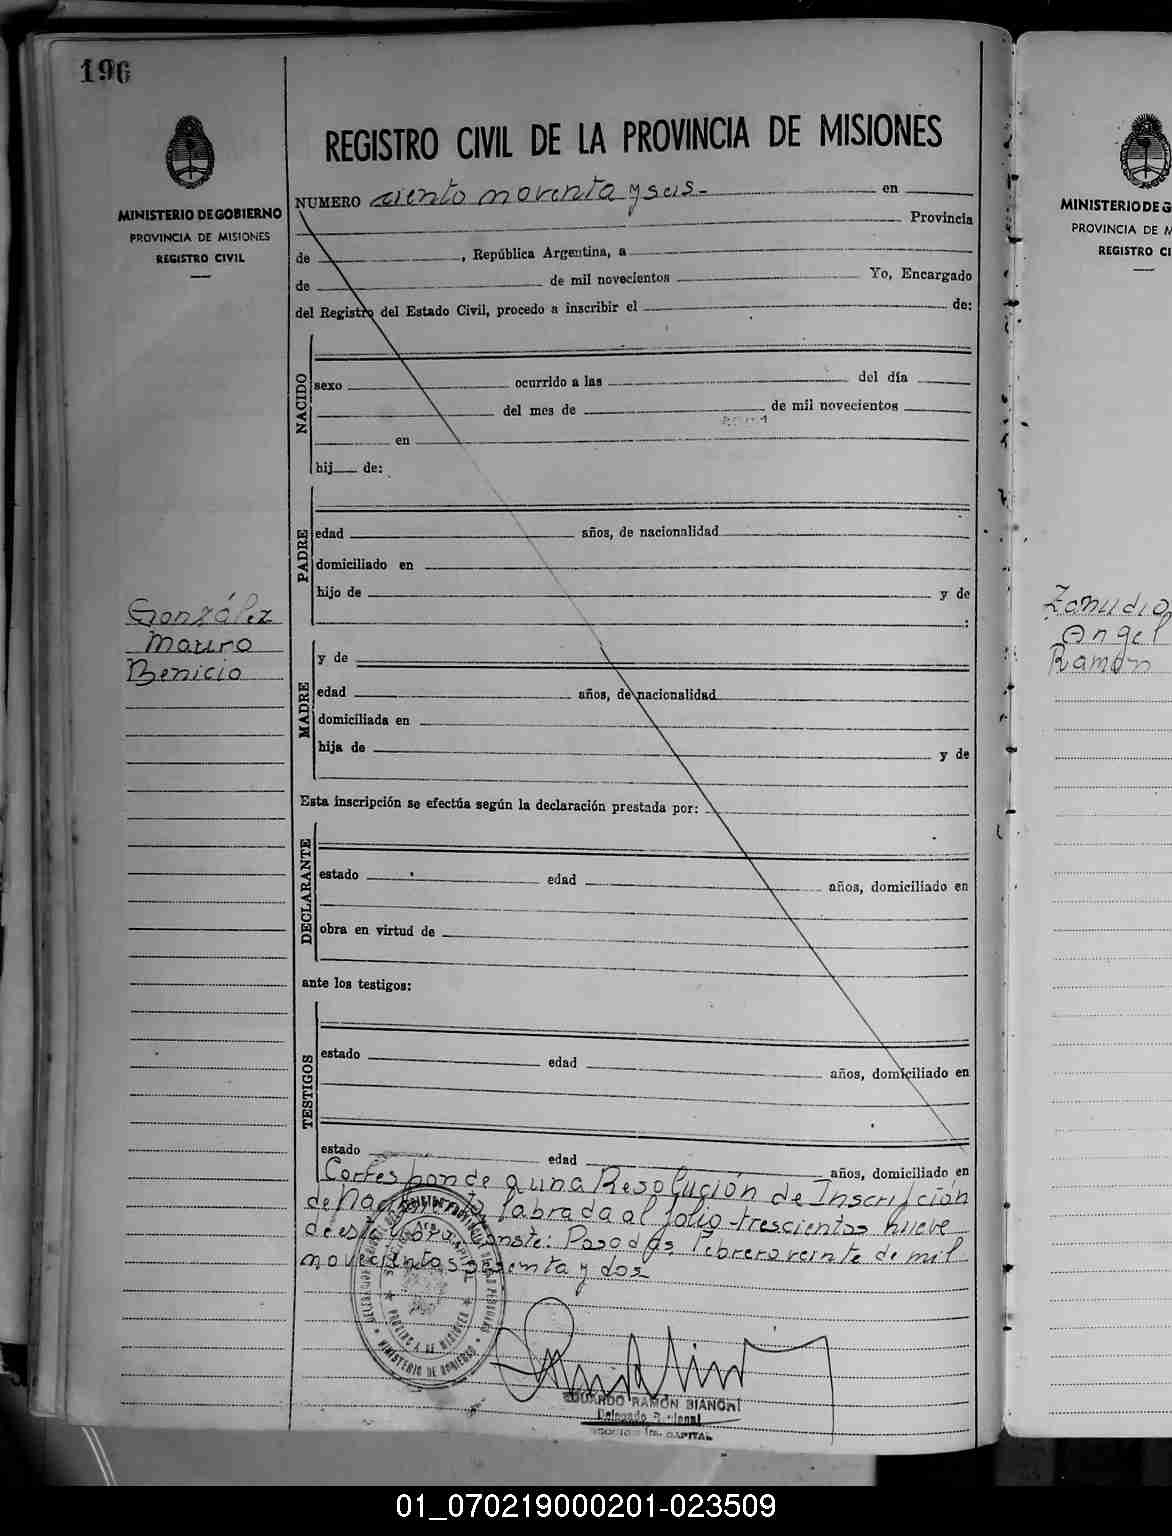 196
MINISTERIO DE GOBIERNO
PROVINCIA DE MISIONES
REGISTRO CIVIL
González
Mauro
Benicio
REGISTRO CIVIL DE LA PROVINCIA DE MISIONES
NUMERO ciento noventa y seis - en
Provincia
de , República Argentina, a
de de mil novecientos Yo, Encargado
del Registro del Estado Civil, procedo a inscribir el de:
NACIDO
sexo ocurrido a las del día
del mes de de mil novecientos
en
hij de:
PADRE
edad años, de nacionalidad
domiciliado en
hijo de y de
:
MADRE
y de
edad años, de nacionalidad
domiciliada en
hija de y de
Esta inscripción se efectúa según la declaración prestada por:
DECLARANTE
estado edad años, domiciliado en
obra en virtud de
ante los testigos:
TESTIGOS
estado edad años, domiciliado en
estado edad años, domiciliado en
Corresponde a una Resolución de Inscripción
de labrada al folio trescientos nueve
de este Libro Conste: Posadas Febrero veinte de mil
novecientos y dos
PROVINCIA DE MISIONES
MINISTERIO DE GOBIERNO
EDUARDO RAMÓN BIANCHI
Delegado
CAPITAL
MINISTERIO DE G
PROVINCIA DE M
REGISTRO CI
Zamudio
Angel
Ramón
01_070219000201-023509